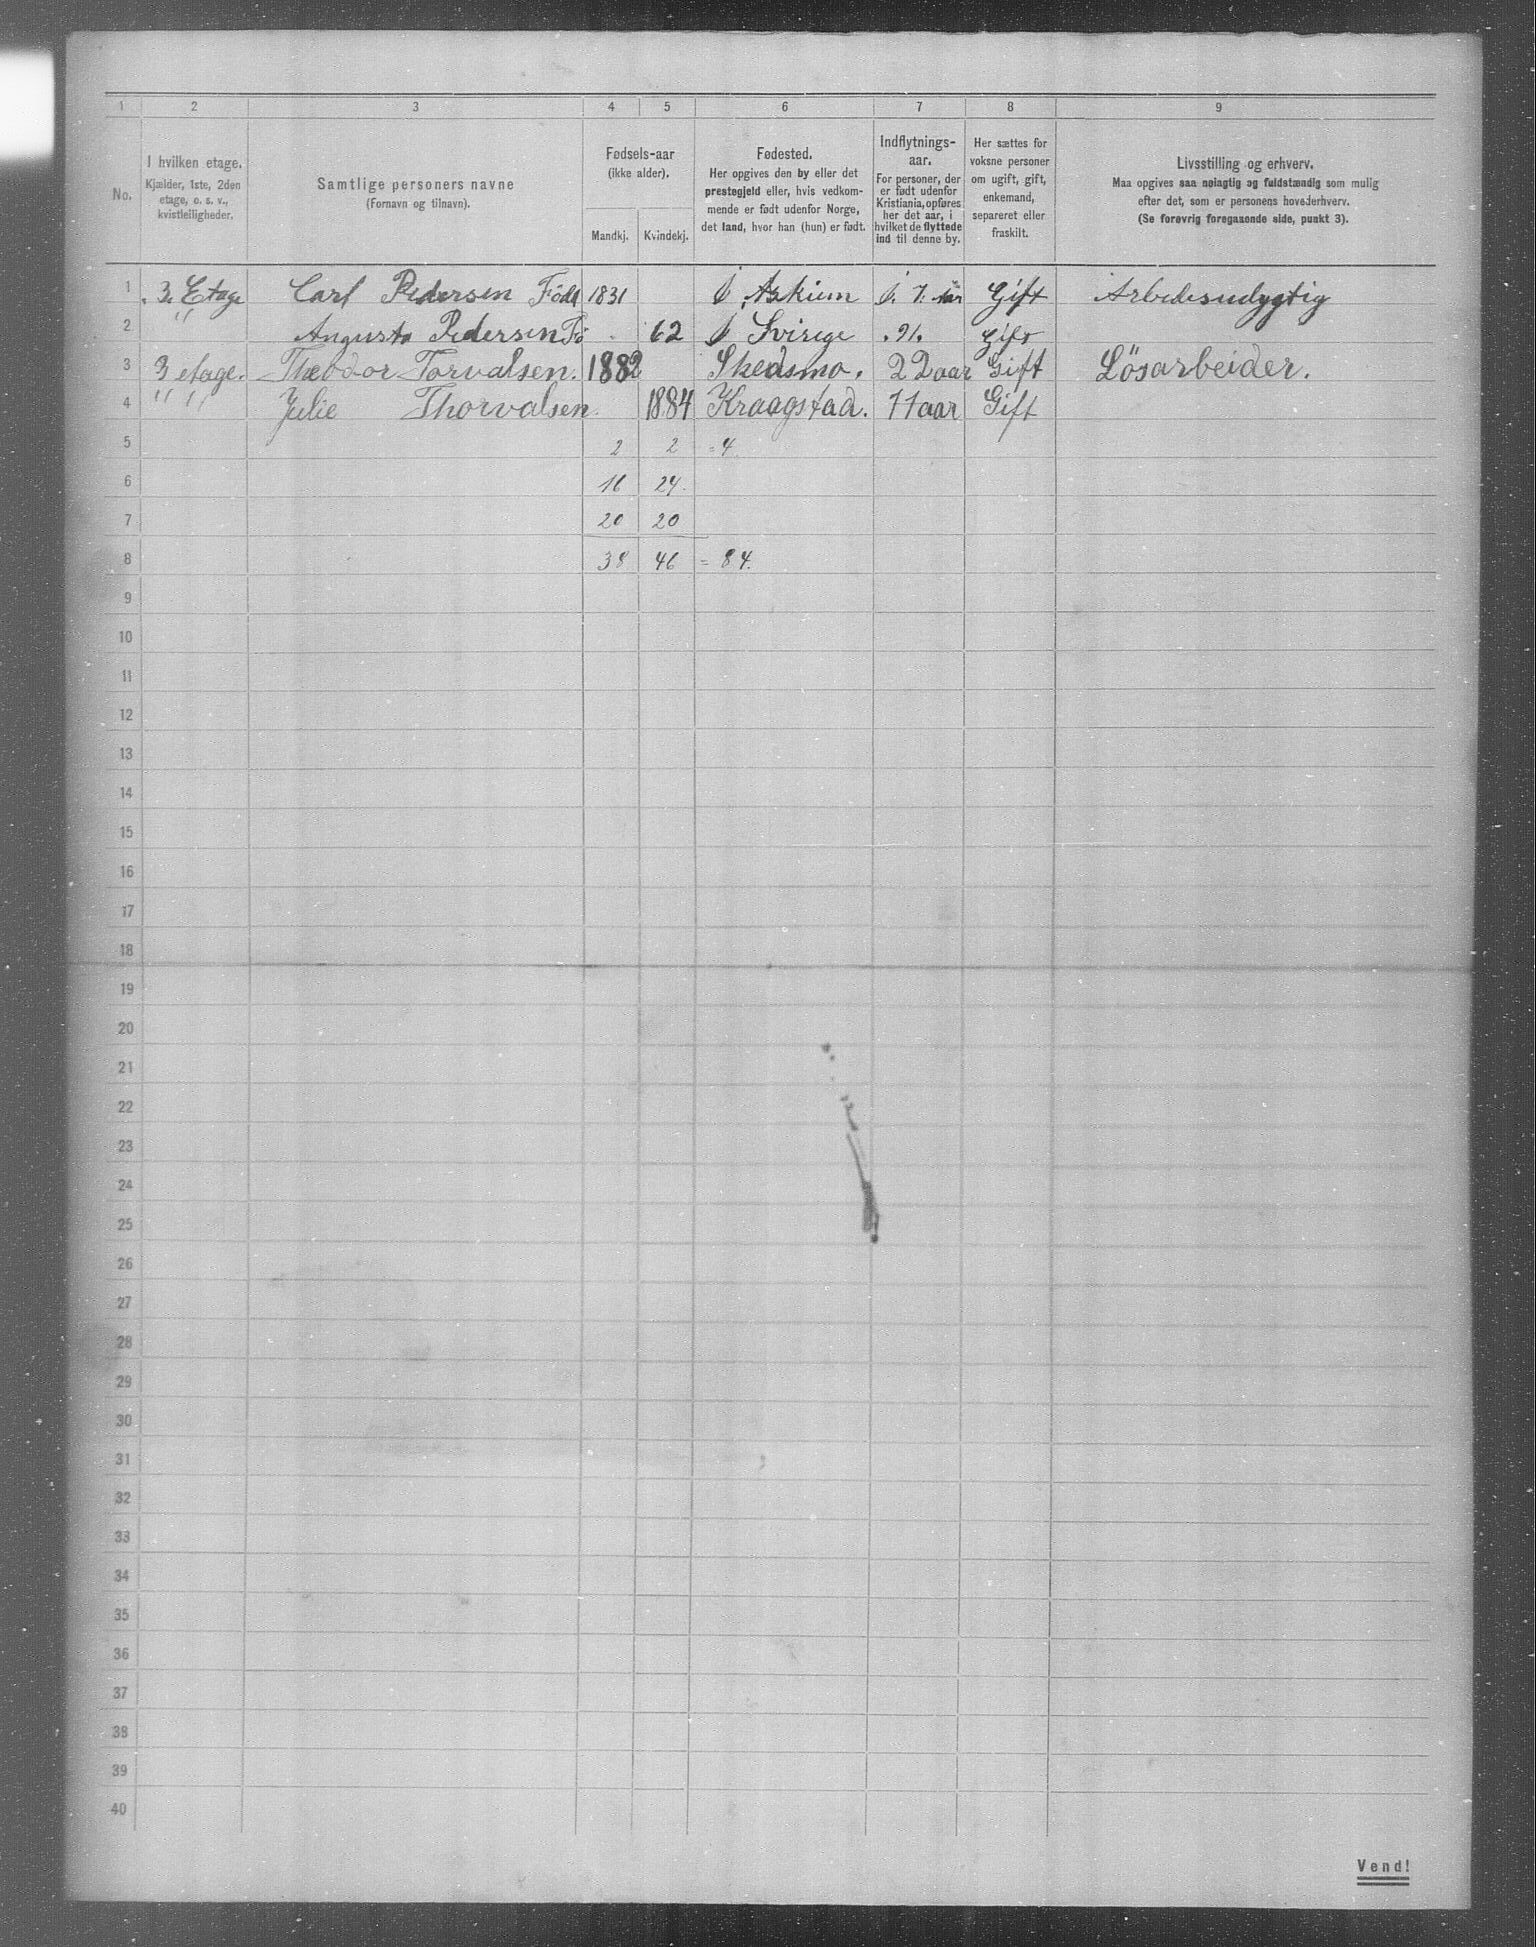 1 2 3 4 5 6 7 8 9
No. I hvilken etage. Kjælder, 1ste, 2den etage, o. s. v., kvistleiligheder.
Samtlige personers navne (Fornavn og tilnavn).
Fødsels-aar (ikke alder). Mandkj. Kvindekj.
Fødested. Her opgives den by eller det prestegjeld eller, hvis vedkommende er født udenfor Norge, det land, hvor han (hun) er født.
Indflytnings-aar. For personer, der er født udenfor Kristiania, opføres her det aar, i hvilket de flyttede ind til denne by.
Her sættes for voksne personer om ugift, gift, enkemand, separeret eller fraskilt.
Livsstilling og erhverv. Maa opgives saa nøiagtig og fuldstændig som mulig efter det, som er personens hovederhverv. (Se forøvrig foregaaende side, punkt 3).
1 3. Etage Carl Pedersen Född 1831 I Askium I. 7. aar Gift Arbedesudygtig
2 " Augusta Pedersen Fö 62 I Svirige . 91. Gift
3 3 etage. Theodor Torvalsen. 1882 Skedsmo. 22 aar Gift Lösarbeider.
4 " " Julie Thorvalsen 1884 Kraagstad. 11 aar Gift
5 2 2 = 4
6 16 24
7 20 20
8 38 46 = 84.
9
10
11
12
13
14
15
16
17
18
19
20
21
22
23
24
25
26
27
28
29
30
31
32
33
34
35
36
37
38
39
40
Vend!